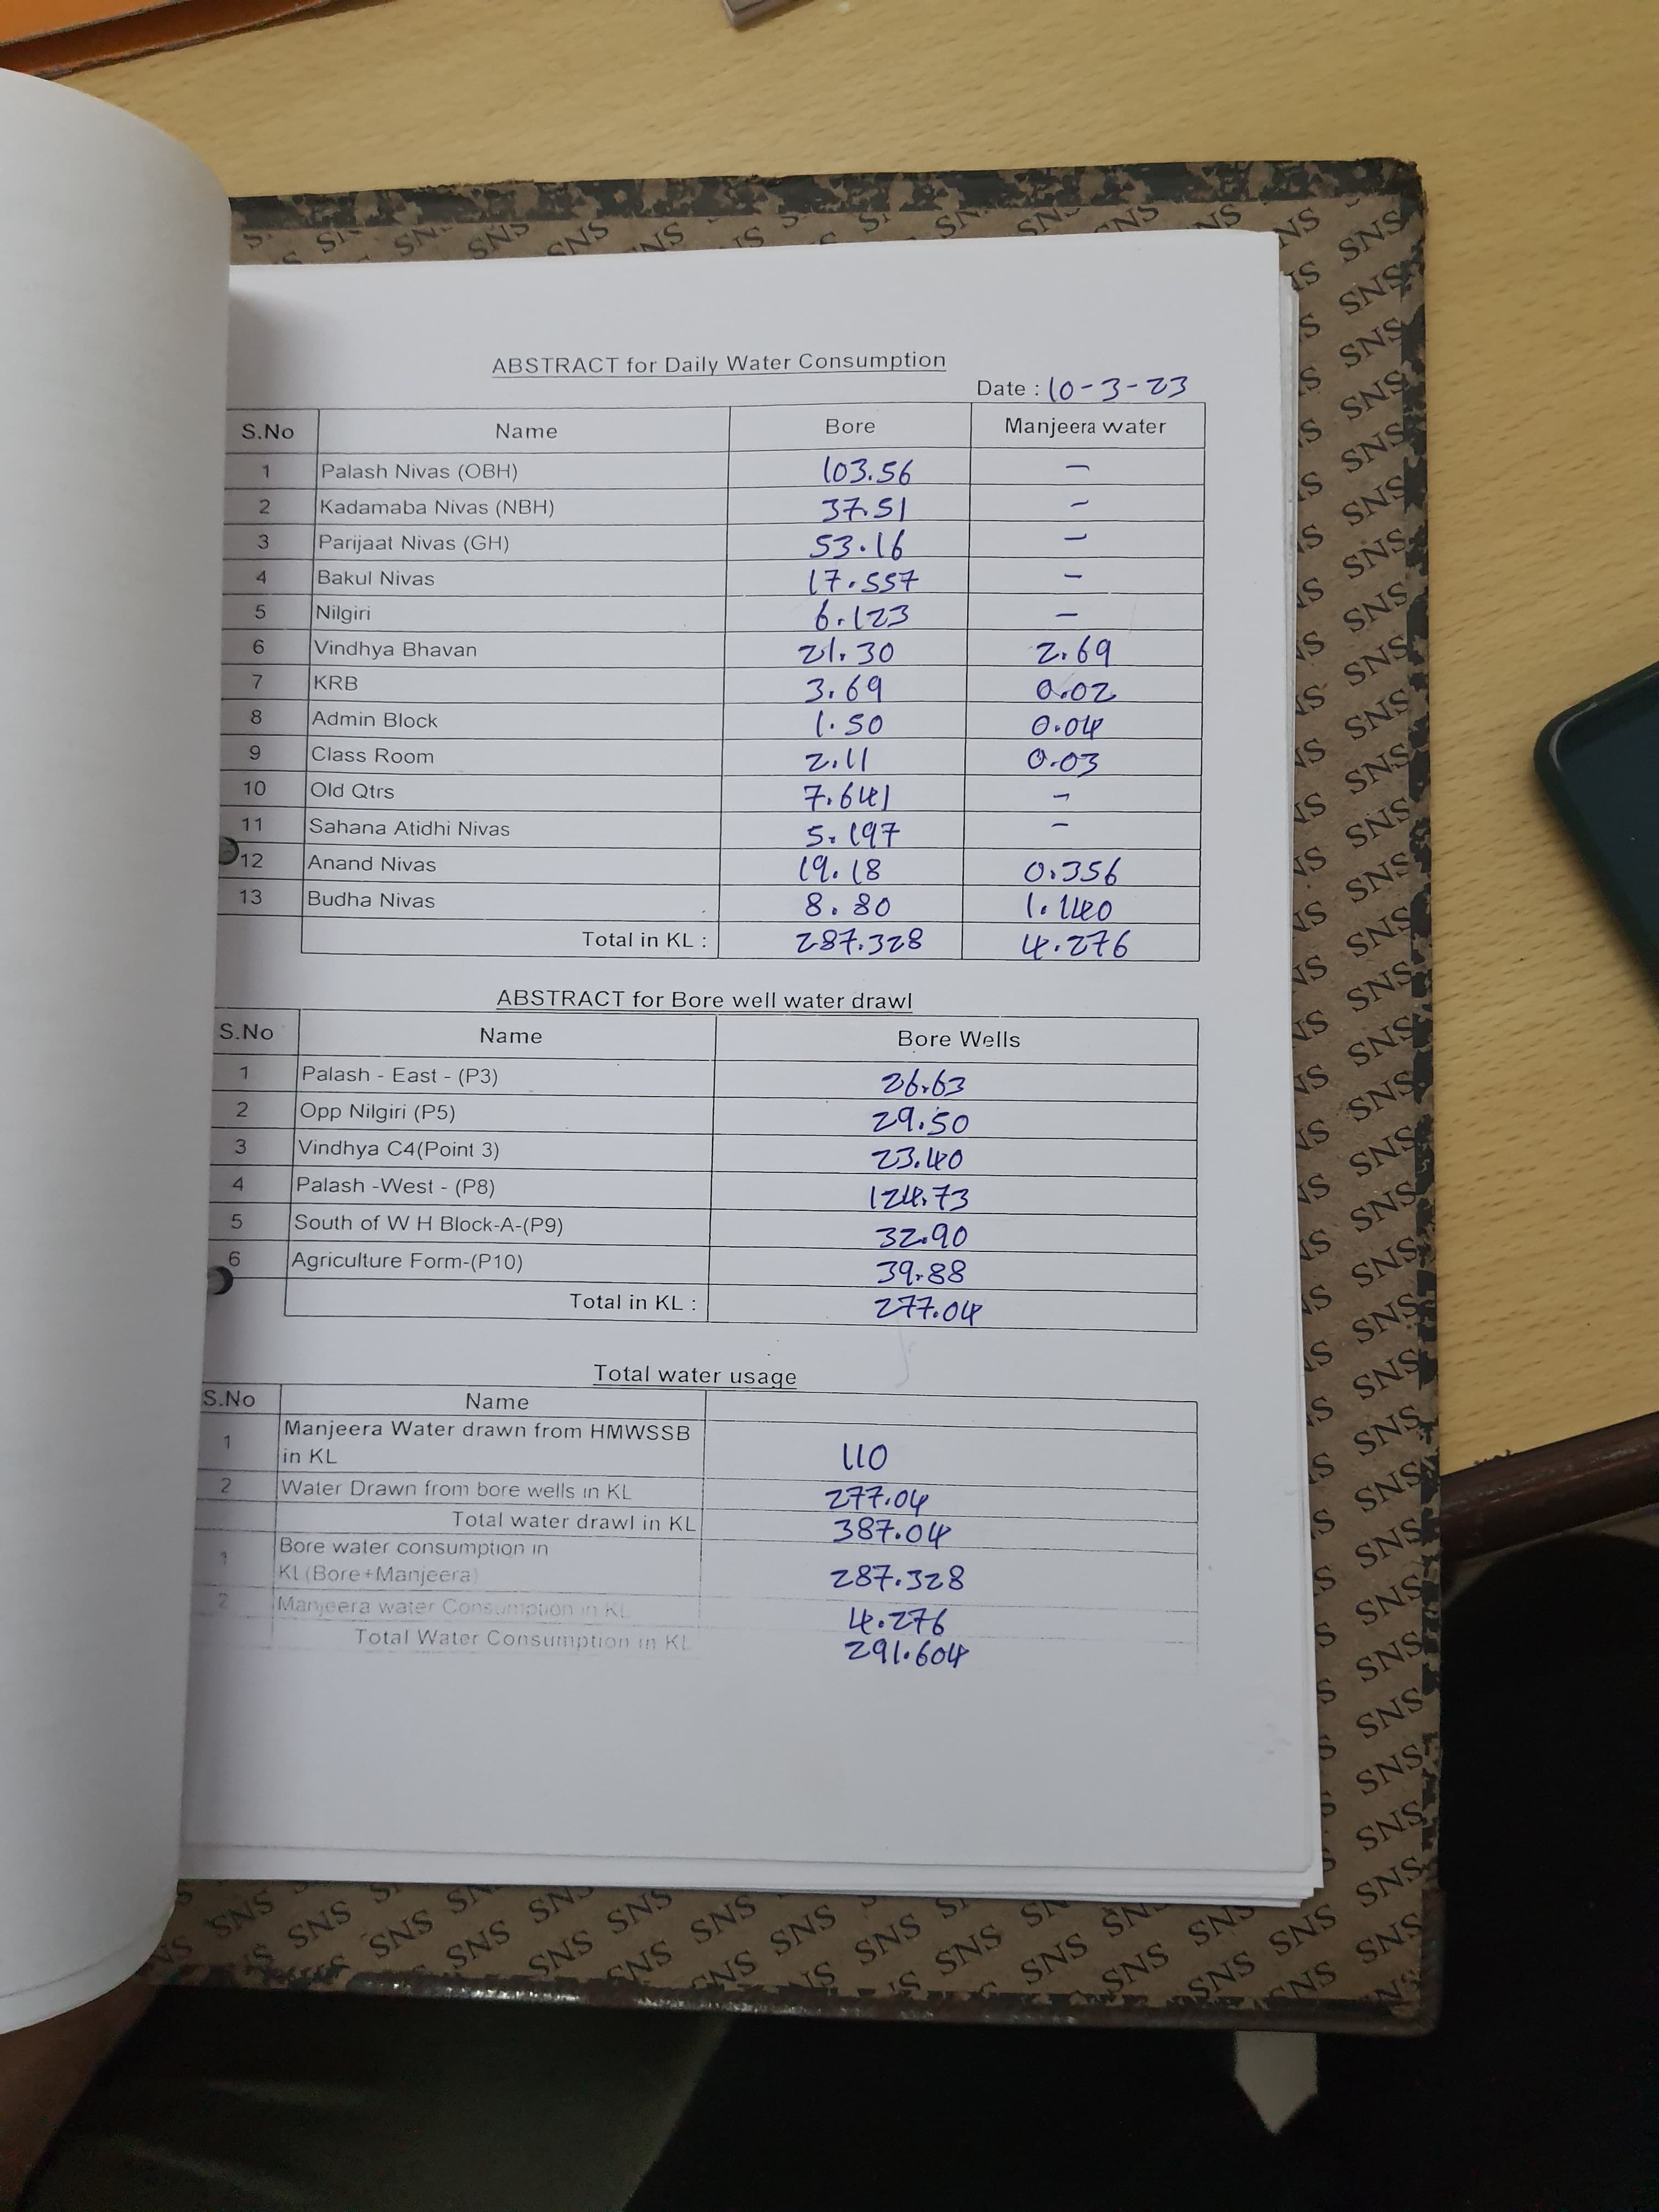 ABSTRACT for Daily Water Consumption
Date : 10-3-23
S.No Name Bore Manjeera water
1 Palash Nivas (OBH) 103.56 -
2 Kadamaba Nivas (NBH) 37.51 -
3 Parijaat Nivas (GH) 53.16 -
4 Bakul Nivas 17.557 -
5 Nilgiri 6.123 -
6 Vindhya Bhavan 21.30 2.69
7 KRB 3.69 0.02
8 Admin Block 1.50 0.04
9 Class Room 2.11 0.03
10 Old Qtrs 7.641 -
11 Sahana Atidhi Nivas 5.197 -
12 Anand Nivas 19.18 0.356
13 Budha Nivas 8.80 1.140
Total in KL : 287.328 4.276
ABSTRACT for Bore well water drawl
S.No Name Bore Wells
1 Palash - East - (P3) 26.63
2 Opp Nilgiri (P5) 29.50
3 Vindhya C4(Point 3) 23.40
4 Palash -West - (P8) 124.73
5 South of W H Block-A-(P9) 32.90
6 Agriculture Form-(P10) 39.88
Total in KL : 277.04
Total water usage
S.No Name
1 Manjeera Water drawn from HMWSSB
in KL 110
2 Water Drawn from bore wells in KL 277.04
Total water drawl in KL 387.04
1 Bore water consumption in
KL(Bore+Manjeera) 287.328
2 Manjeera water Consumption in KL 4.276
Total Water Consumption in KL 291.604
SNS